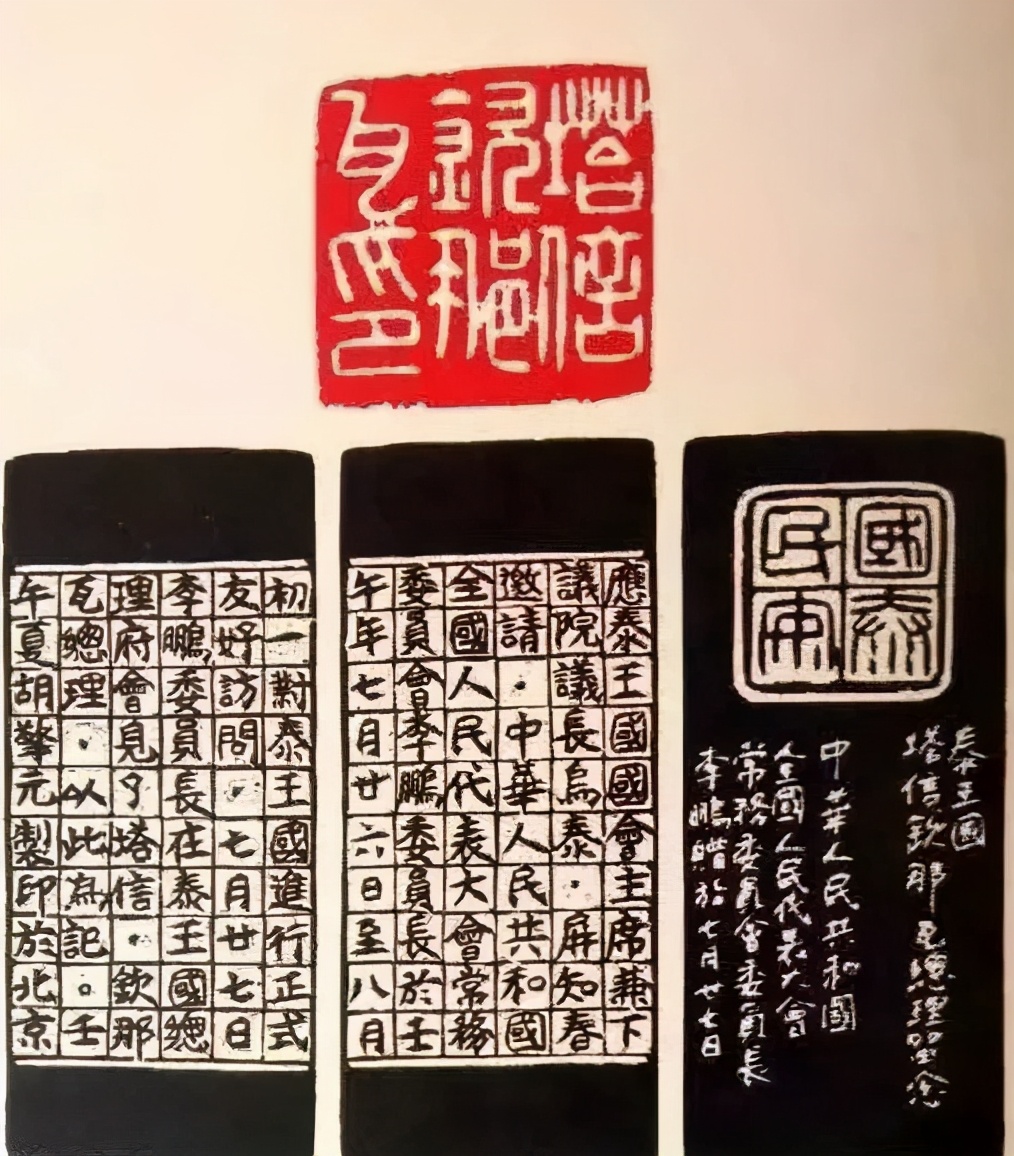 塔信
欽那
瓦印
國泰
民安
泰王國
塔信欽那瓦總理留念
中華人民共和國
全國人民代表大會
常務委員會委員長
李鵬贈於七月廿七日
應泰王國國會主席兼下
議院議長烏泰·屏知春
邀請·中華人民共和國
全國人民代表大會常務
委員會李鵬委員長於壬
午年七月廿六日至八月
初一對泰王國進行正式
友好訪問·七月廿七日
李鵬委員長在泰王國總
理府會見了塔信·欽那
瓦總理·以此為記。壬
午夏胡擎元製印於北京